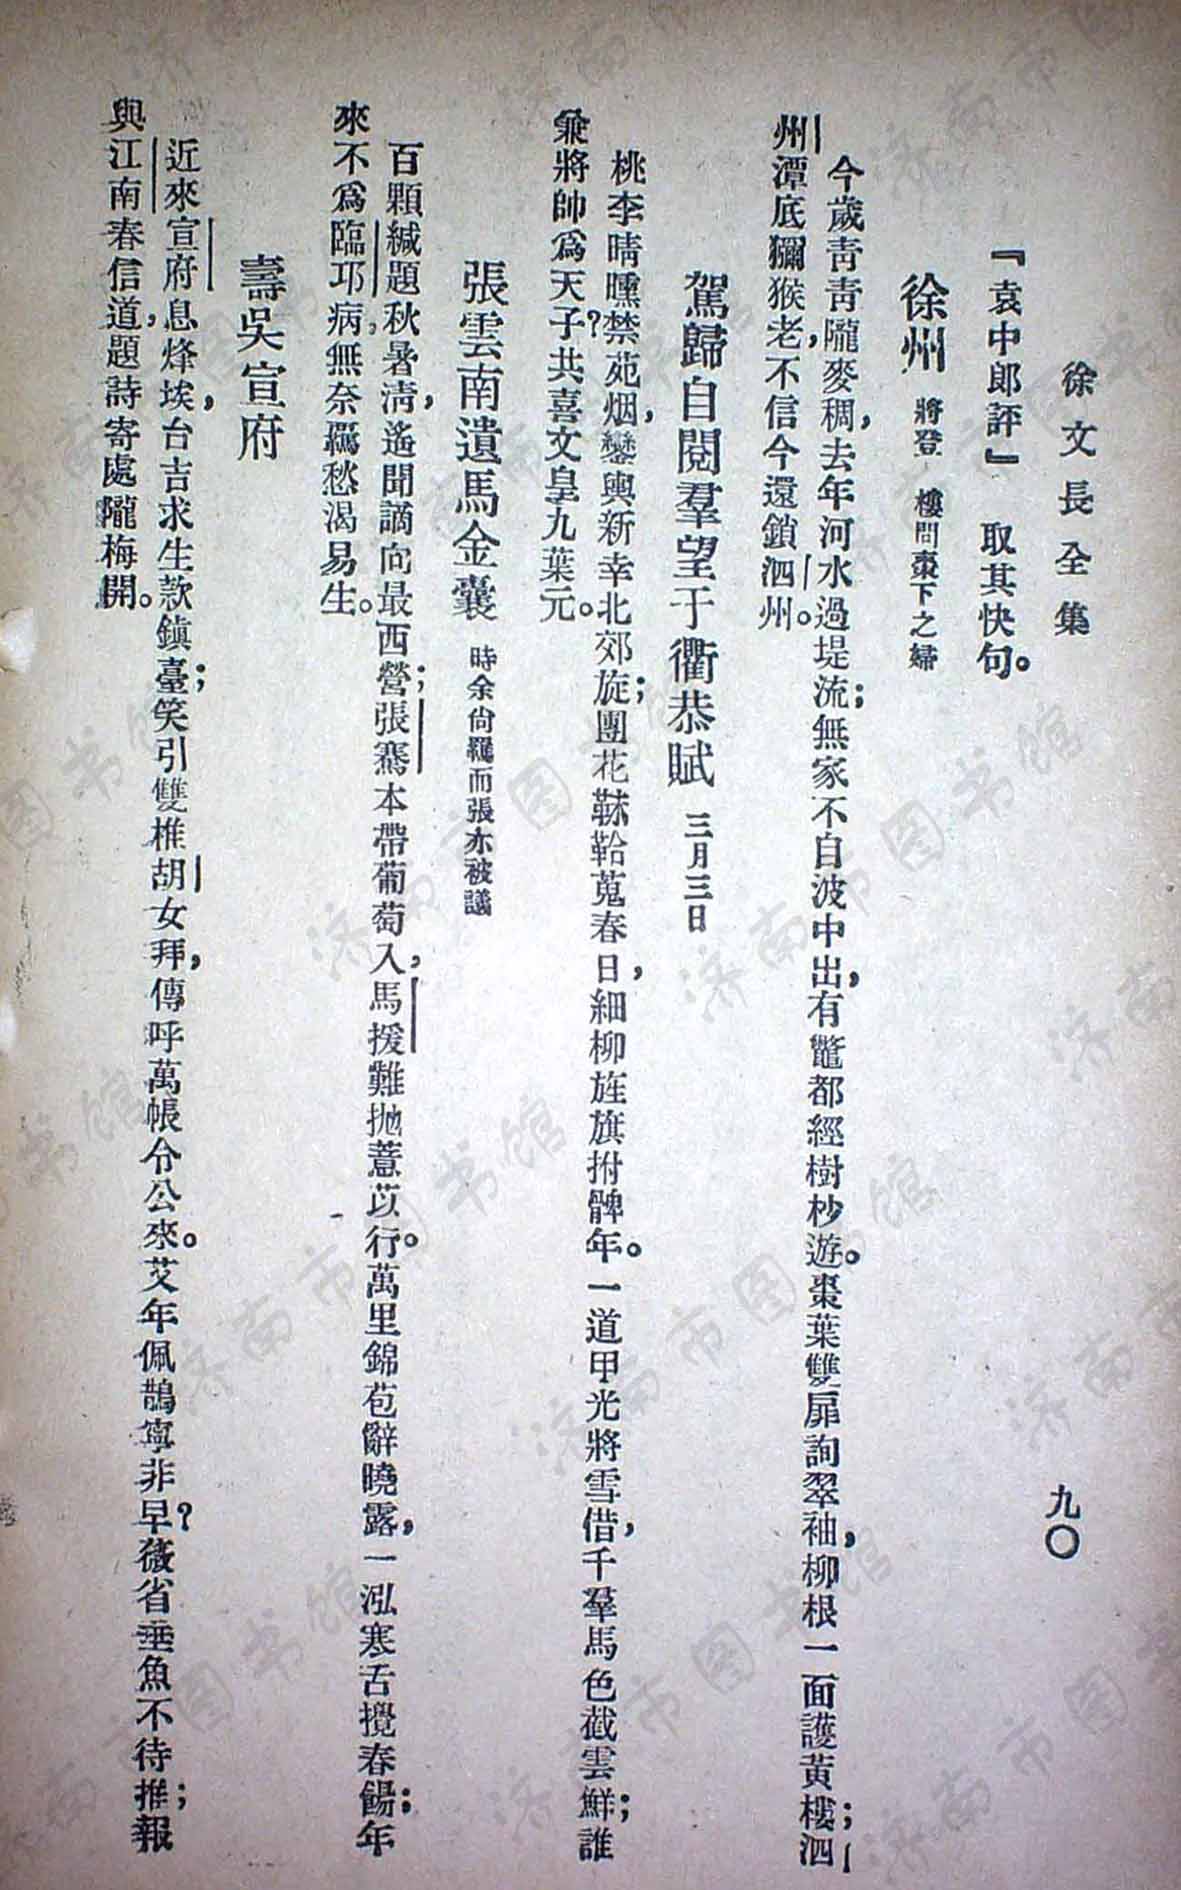 徐文長全集
九〇
『袁中郎評』 取其快句。
徐州 將登 樓問棗下之婦
今歲靑靑隴麥稠，去年河水過堤流；無家不自波中出，有鼈都經樹杪遊。棗葉雙扉詢翠袖，柳根一面護黃樓；泗
州潭底獼猴老，不信今還鎖泗州。
駕歸自閱羣望于衢恭賦 三月三日
桃李晴曛禁苑烟，鑾輿新幸北郊旋；團花韎韐蒐春日，細柳旌旗拊髀年。一道甲光將雪借，千羣馬色截雲鮮；誰
兼將帥爲天子？共喜文皇九葉元。
張雲南遺馬金囊 時余尙羈而張亦被議
百顆緘題秋暑淸，遙聞謫向最西營；張騫本帶葡萄入，馬援難抛薏苡行。萬里錦苞辭曉露，一泓寒舌攪春餳；年
來不爲臨邛病，無奈羈愁渴易生。
壽吳宣府
近來宣府息烽埃，台吉求生款鎭臺；笑引雙椎胡女拜，傳呼萬帳令公來。艾年佩鵲寧非早？薇省垂魚不待推；報
與江南春信道，題詩寄處隴梅開。
济南市图书馆